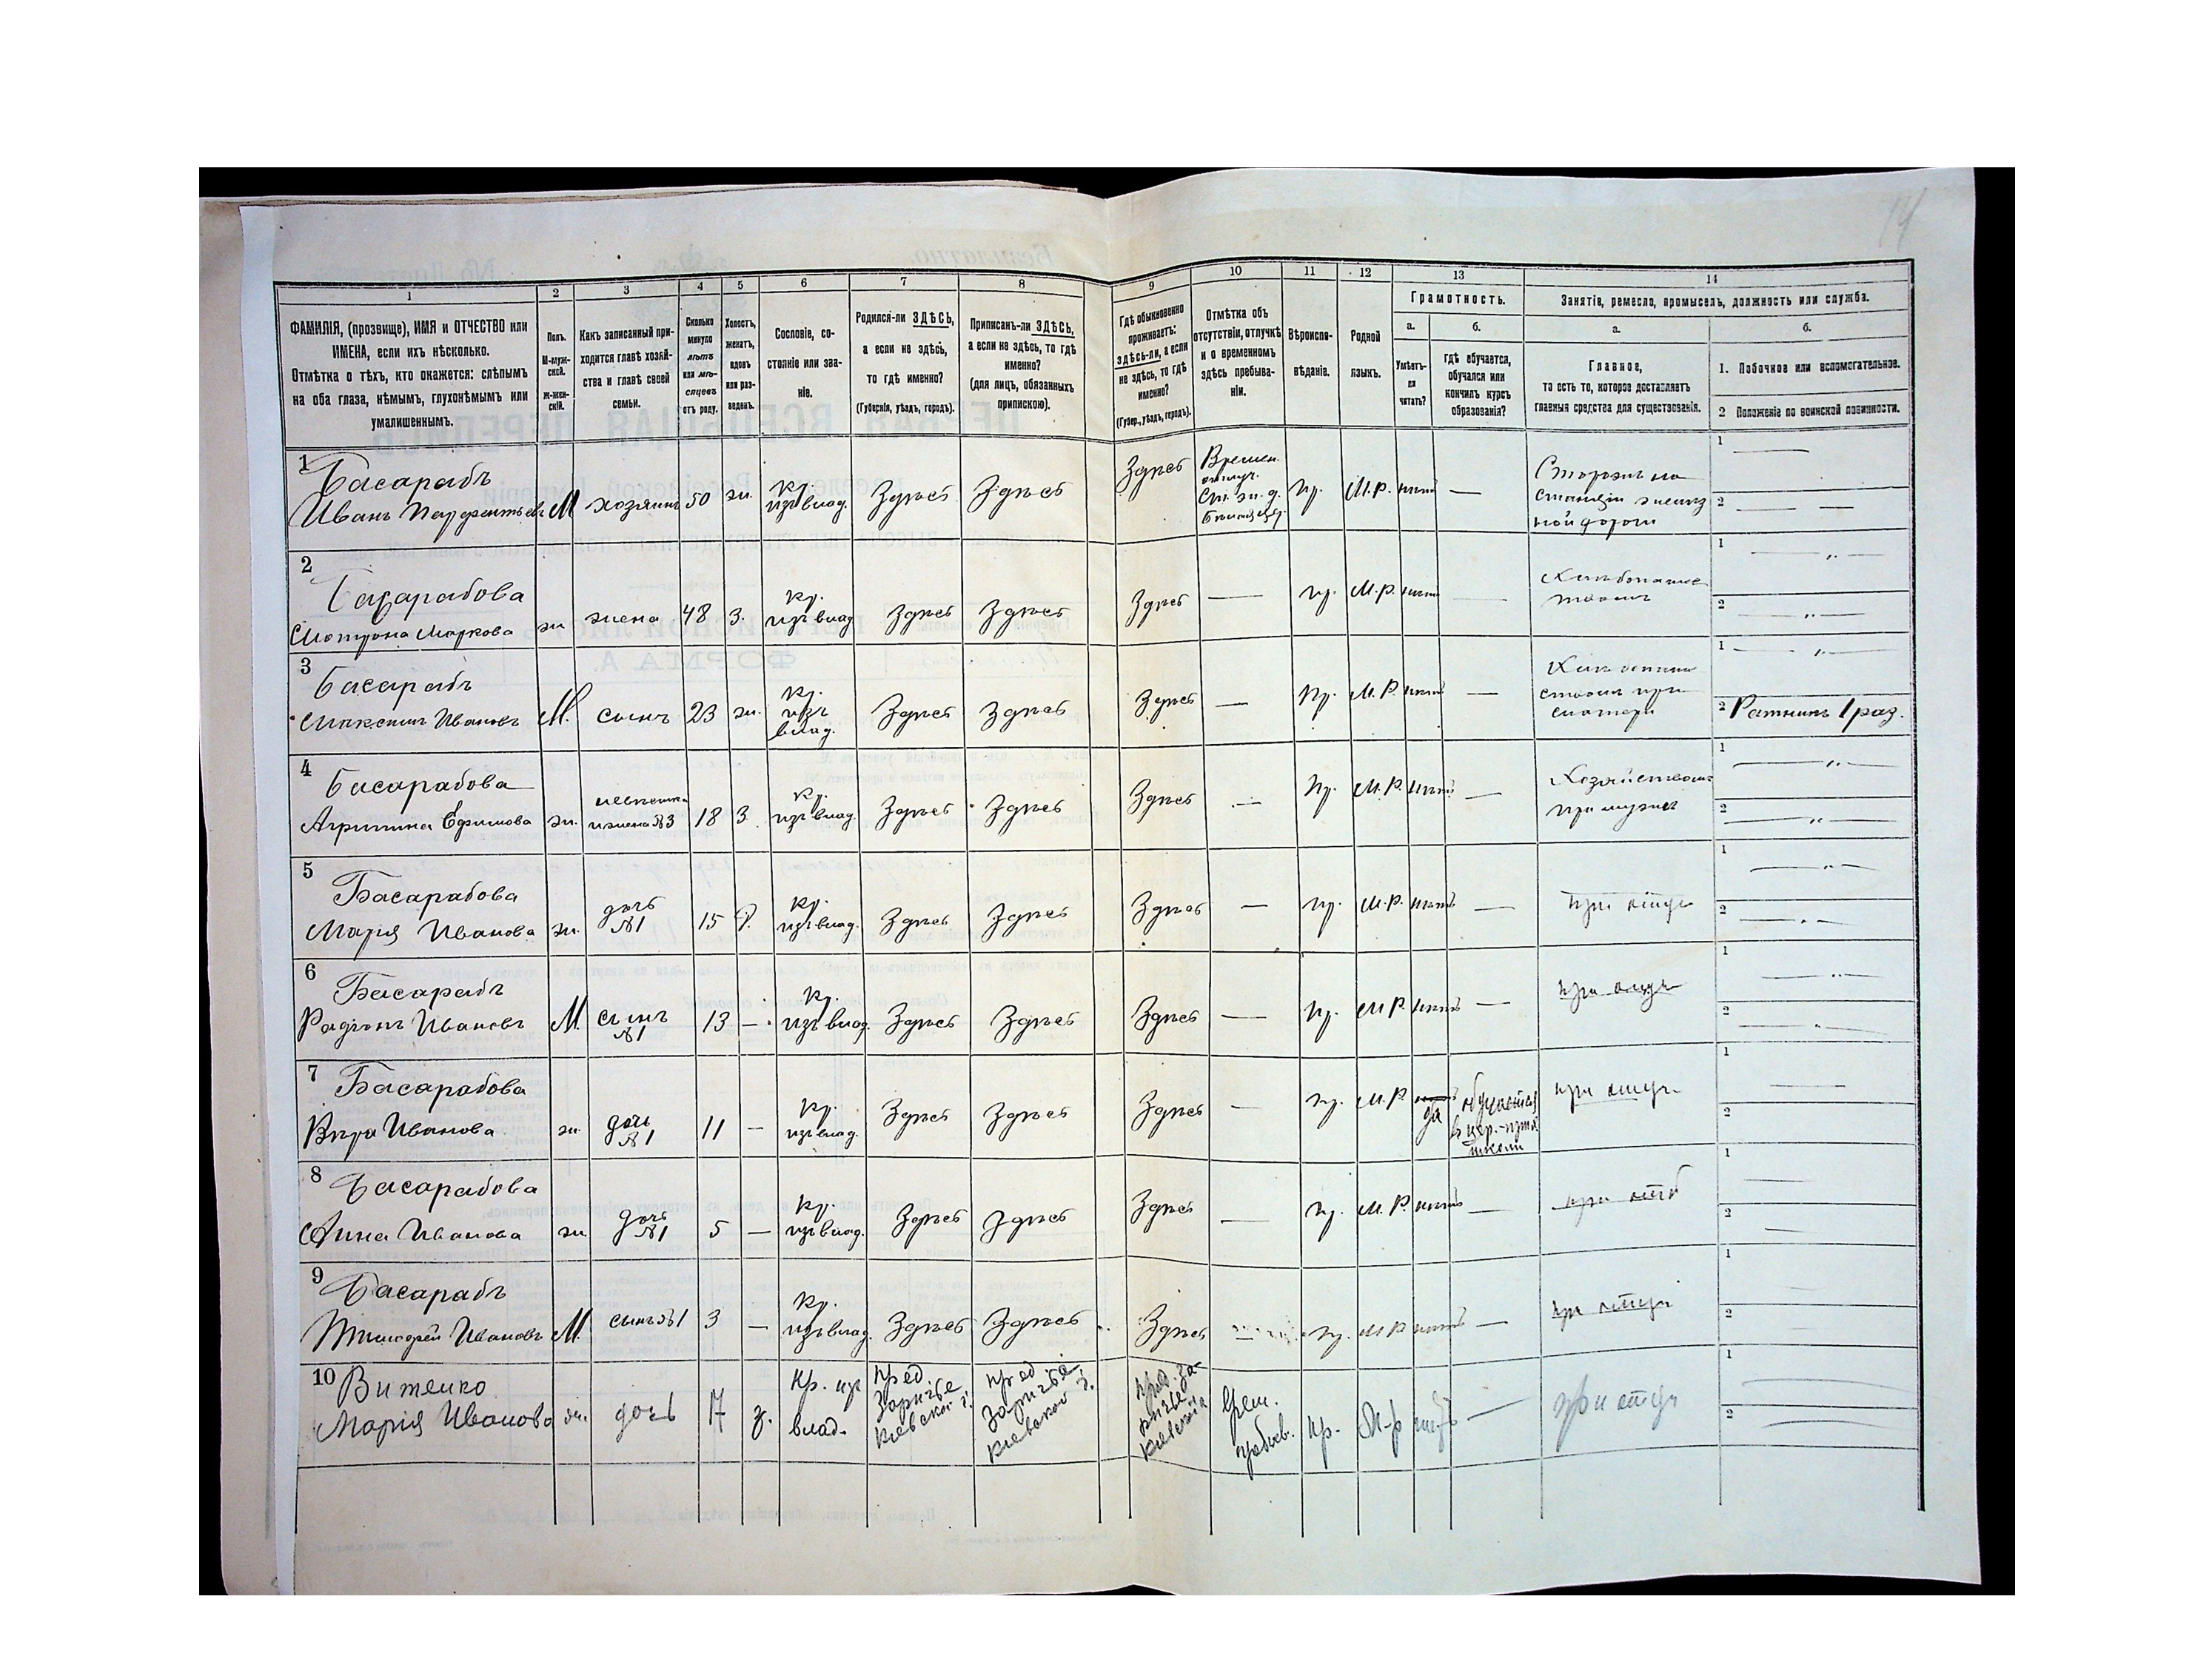 14
1
2
3
4
5
6
7
8
9
10
11
12
13
14
ФАМИЛІЯ, (прозвище), ИМЯ и ОТЧЕСТВО или
ИМЕНА, если ихъ нѣсколько.
Отмѣтка о тѣхъ, кто окажется: слѣпымъ
на оба глаза, нѣмымъ, глухонѣмымъ или
умалишеннымъ.
Полъ.
М-муж-
ской.
Ж-жен-
скій.
Какъ записанный при-
ходится главѣ хозяй-
ства и главѣ своей
семьи.
Сколько
минуло
лѣтъ
или мѣ-
сяцевъ
отъ роду.
Холостъ,
женатъ,
вдовъ
или раз-
веденъ.
Сословіе, со-
стояніе или зва-
ніе.
Родился-ли ЗДѢСЬ,
а если не здѣсь,
то гдѣ именно?
(Губернія, уѣздъ, городъ).
Приписанъ-ли ЗДѢСЬ,
а если не здѣсь, то гдѣ
именно?
(для лицъ, обязанныхъ
припискою).
Гдѣ обыкновенно
проживаетъ:
здѣсь-ли, а если
не здѣсь, то гдѣ
именно?
(Губер., уѣздъ, городъ).
Отмѣтка объ
отсутствіи, отлучкѣ
и о временномъ
здѣсь пребыва-
ніи.
Вѣроиспо-
вѣданіе.
Родной
языкъ.
Грамотность.
а.
б.
Умѣетъ-
ли
читать?
гдѣ обучается,
обучался или
кончилъ курсъ
образованія?
Занятіе, ремесло, промыселъ, должность или служба.
а.
б.
Главное,
то есть то, которое доставляетъ
главныя средства для существованія.
1. Побочное или вспомогательное.
2 Положеніе по воинской повинности.
1
Басарабъ
Иванъ Парфентьевъ М хозяинъ 50 ж. кр. изъ влад. Здѣсь Здѣсь Здѣсь
Времен.
отлуч.
Ст. ж. д.
пр. М.р. нѣтъ —
Сторожъ на
станціи желѣз
ной дороги
1 —
2 — —
2
Басарабова
Мотрона Маркова ж жена 48 З. кр. изъ влад Здѣсь Здѣсь Здѣсь — пр. М.р. нѣтъ
Хлѣбопаше
ствомъ
1 — „ —
2 — „ —
3
Басарабъ
Максимъ Ивановъ М. сынъ 23 ж. кр. изъ влад. Здѣсь Здѣсь Здѣсь — пр. М.Р. нѣтъ —
Хлѣбопаше
ствомъ при
матери
1 — „ —
2 Ратникъ 1 раз.
4
Басарабова
Агрипина Ефимова ж. невѣстка и жена №3 18 З. кр. изъ влад. Здѣсь Здѣсь Здѣсь — пр. М.Р. нѣтъ —
Хозяйствомъ
при мужѣ
1 — „ —
2 — „ —
5
Басарабова
Марія Иванова ж. дочь №1 15 кр. изъ влад. Здѣсь Здѣсь Здѣсь — пр. М.Р. нѣтъ — при отцѣ
1 — „ —
2 — „ —
6
Басарабъ
Радіонъ Ивановъ М. сынъ №1 13 — кр. изъ влад. Здѣсь Здѣсь Здѣсь — пр. М.Р. нѣтъ — при отцѣ
1 — „ —
2 — „ —
7
Басарабова
Вѣра Иванова ж. дочь №1 11 — кр. изъ влад. Здѣсь Здѣсь Здѣсь — пр. М.Р. да
обучается
в цер.-прих
школи
при отцѣ
1 —
2
8
Басарабова
Анна Иванова ж дочь №1 5 — кр. изъ влад. Здѣсь Здѣсь Здѣсь — пр. М.Р. нѣтъ — при отцѣ
1 —
2 —
9
Басарабъ
Тимофей Ивановъ М. сынъ №1 3 — кр. изъ влад. Здѣсь Здѣсь Здѣсь — пр. М.Р. нѣтъ — при отцѣ
1 —
2 —
10
Витенко
Марія Иванова ж. дочь 17 з. кр. из влад.
пред
Зарічье
Кіевской г.
пред
Зарічье
Кіевской г.
пред. За-
річье
Кіевской
Врем.
пребыв.
пр. М-р нѣтъ — при отцѣ
1 —
2 —